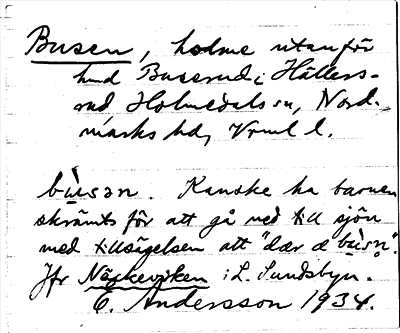 Busen, holme utanför
hmd Buserud i Hällers-
rud Holmedals sn, Nord-
marks hd, Vrml l.
bùsən. Kanske ha barnen
skrämts för att gå ned till sjön
med tillsägelsen att "dær æ bùsn̥".
Jfr Näckeviken i L. Sundsbyn.
C. Andersson 1934.